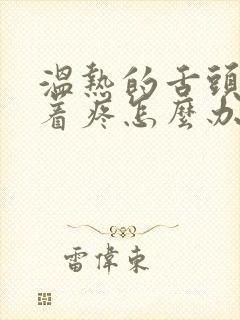 溫熱的舌頭
着疼怎麼办
雷偉東